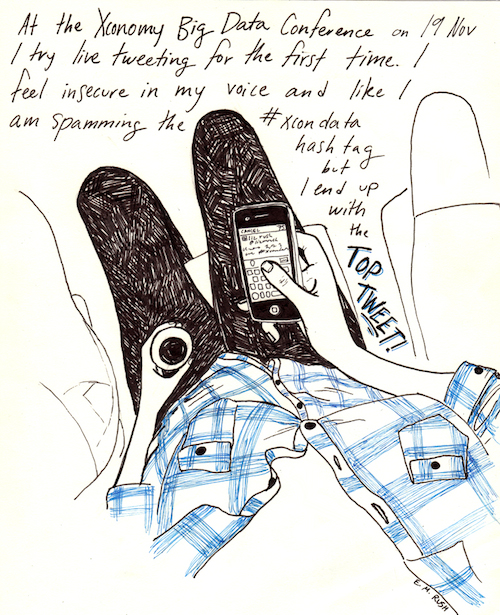 At the Xconomy Big Data Conference on 19 Nov
I try live tweeting for the first time. I
feel insecure in my voice and like I
am spamming the #xcondata
hash tag
but
I end up
with
the
TOP
TWEET!
CANCEL
E.M. RUSH